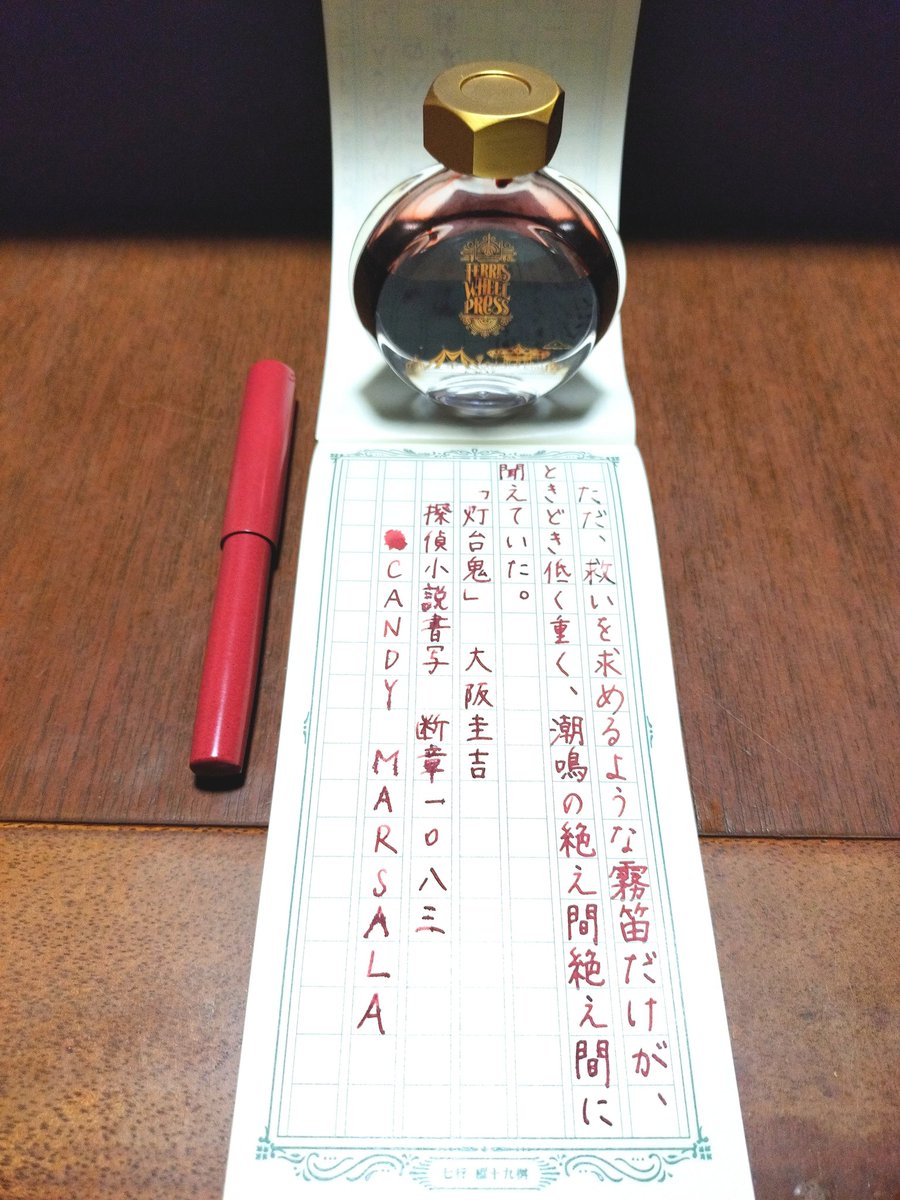 FERRIS
WHEEL
PRESS
ただ、救いを求めるような霧笛だけが、
ときどき低く重く、潮鳴の絶え間絶え間に
聞えていた。
「灯台鬼」 大阪圭吉
探偵小説書写 断章一〇八三
CANDY MARSALA
七行 縦十九桝